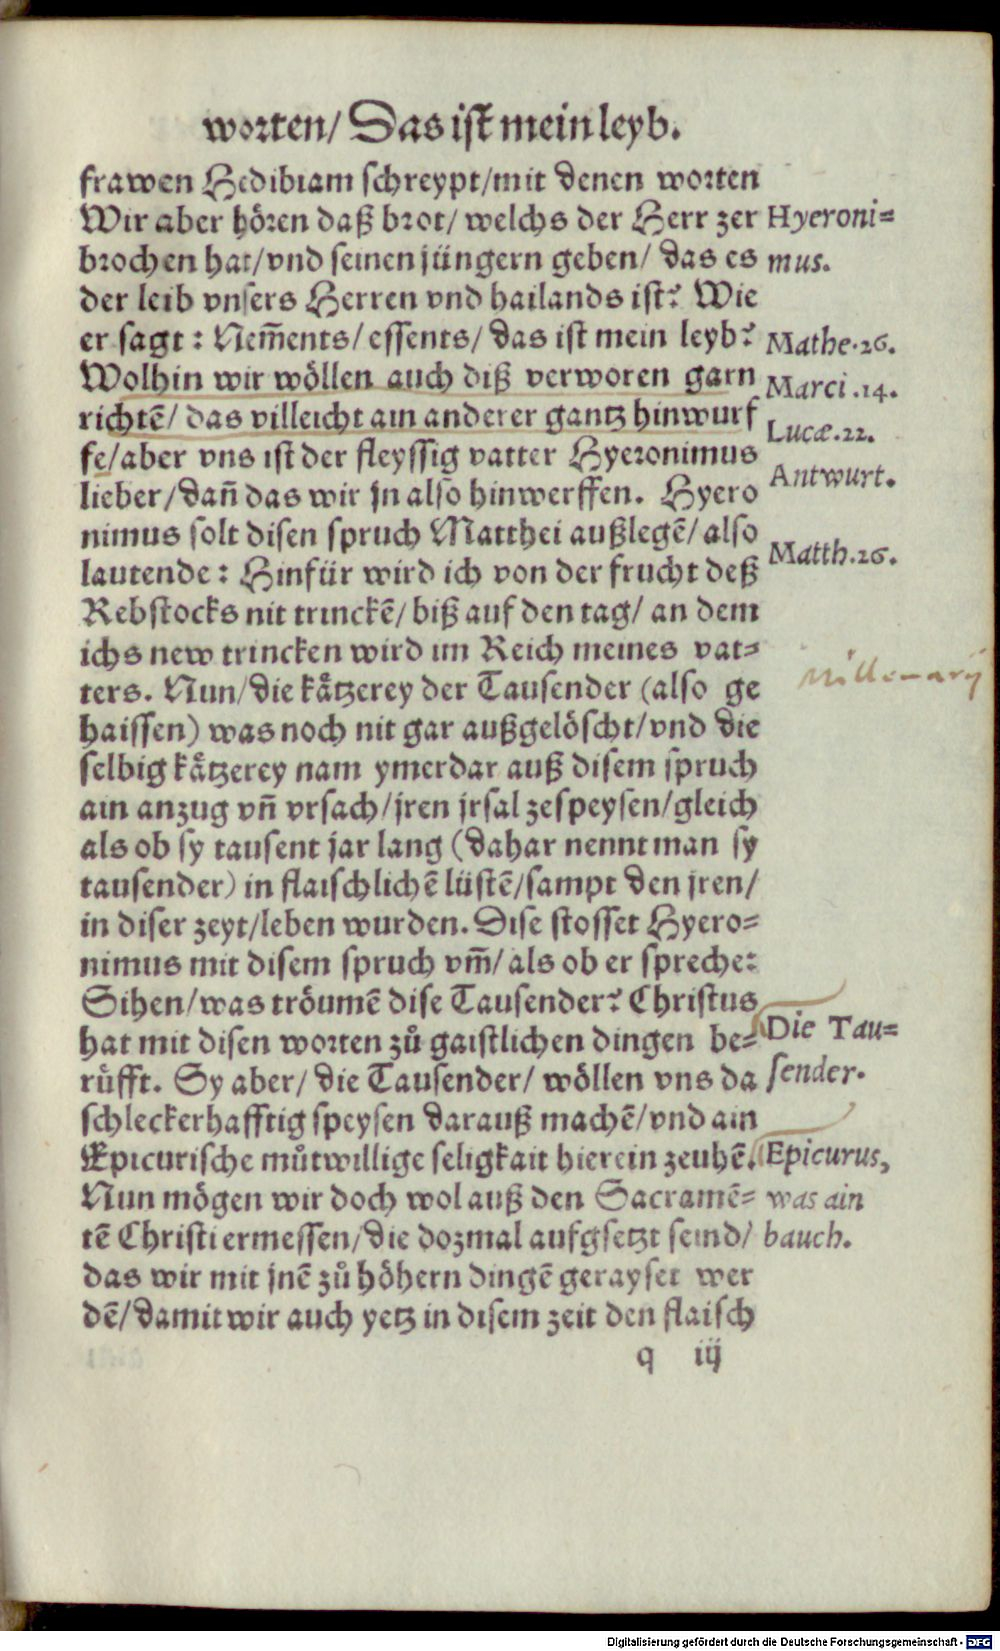 worten/ Das ist mein leyb.
frawen Hedibiam schreypt/mit denen worten
Wir aber hören daß brot/ welchs der Herr zer
brochen hat/vnd seinen jüngern geben/ das es
der leib vnsers Herren vnd hailands ist? Wie
er sagt: Nem̃ents/ essents/ das ist mein leyb?
Wolhin wir wöllen auch diß verworen garn
richtē/ das villeicht ain anderer gantz hinwurf
fe/aber vns ist der fleyssig vatter Hyeronimus
lieber/dañ das wir jn also hinwerffen. Hyero
nimus solt disen spruch Matthei außlegē/ also
lautende: Hinfür wird ich von der frucht deß
Rebstocks nit trinckē/ biß auf den tag/ an dem
ichs new trincken wird im Reich meines vat⸗
ters. Nun/die kätzerey der Tausender (also ge
haissen) was noch nit gar außgelöscht/vnd die
selbig kätzerey nam ymerdar auß disem spruch
ain anzug vñ vrsach/jren jrsal zespeysen/gleich
als ob sy tausent jar lang (dahar nennt man sy
tausender) in flaischlichē lüstē/sampt den jren/
in diser zeyt/leben wurden. Dise stosset Hyero⸗
nimus mit disem spruch vm̃/ als ob er spreche:
Sihen/was tröumē dise Tausender? Christus
hat mit disen worten zů gaistlichen dingen be⸗
rüfft. Sy aber/ die Tausender/ wöllen vns da
schleckerhafftig speysen darauß machē/vnd ain
Epicurische můtwillige seligkait hierein zeuhē.
Nun mögen wir doch wol auß den Sacramē⸗
tē Christi ermessen/die dozmal aufgsetzt seind/
das wir mit jnē zů höhern dingē gerayset wer
dē/damit wir auch yetz in disem zeit den flaisch
q iij
Hyeroni⸗
mus.
Mathe.26.
Marci.14.
Lucæ.22.
Antwurt.
Matth.26.
Millenarij
Die Tau⸗
sender.
Epicurus,
was ain
bauch.
Digitalisierung gefördert durch die Deutsche Forschungsgemeinschaft - DFG